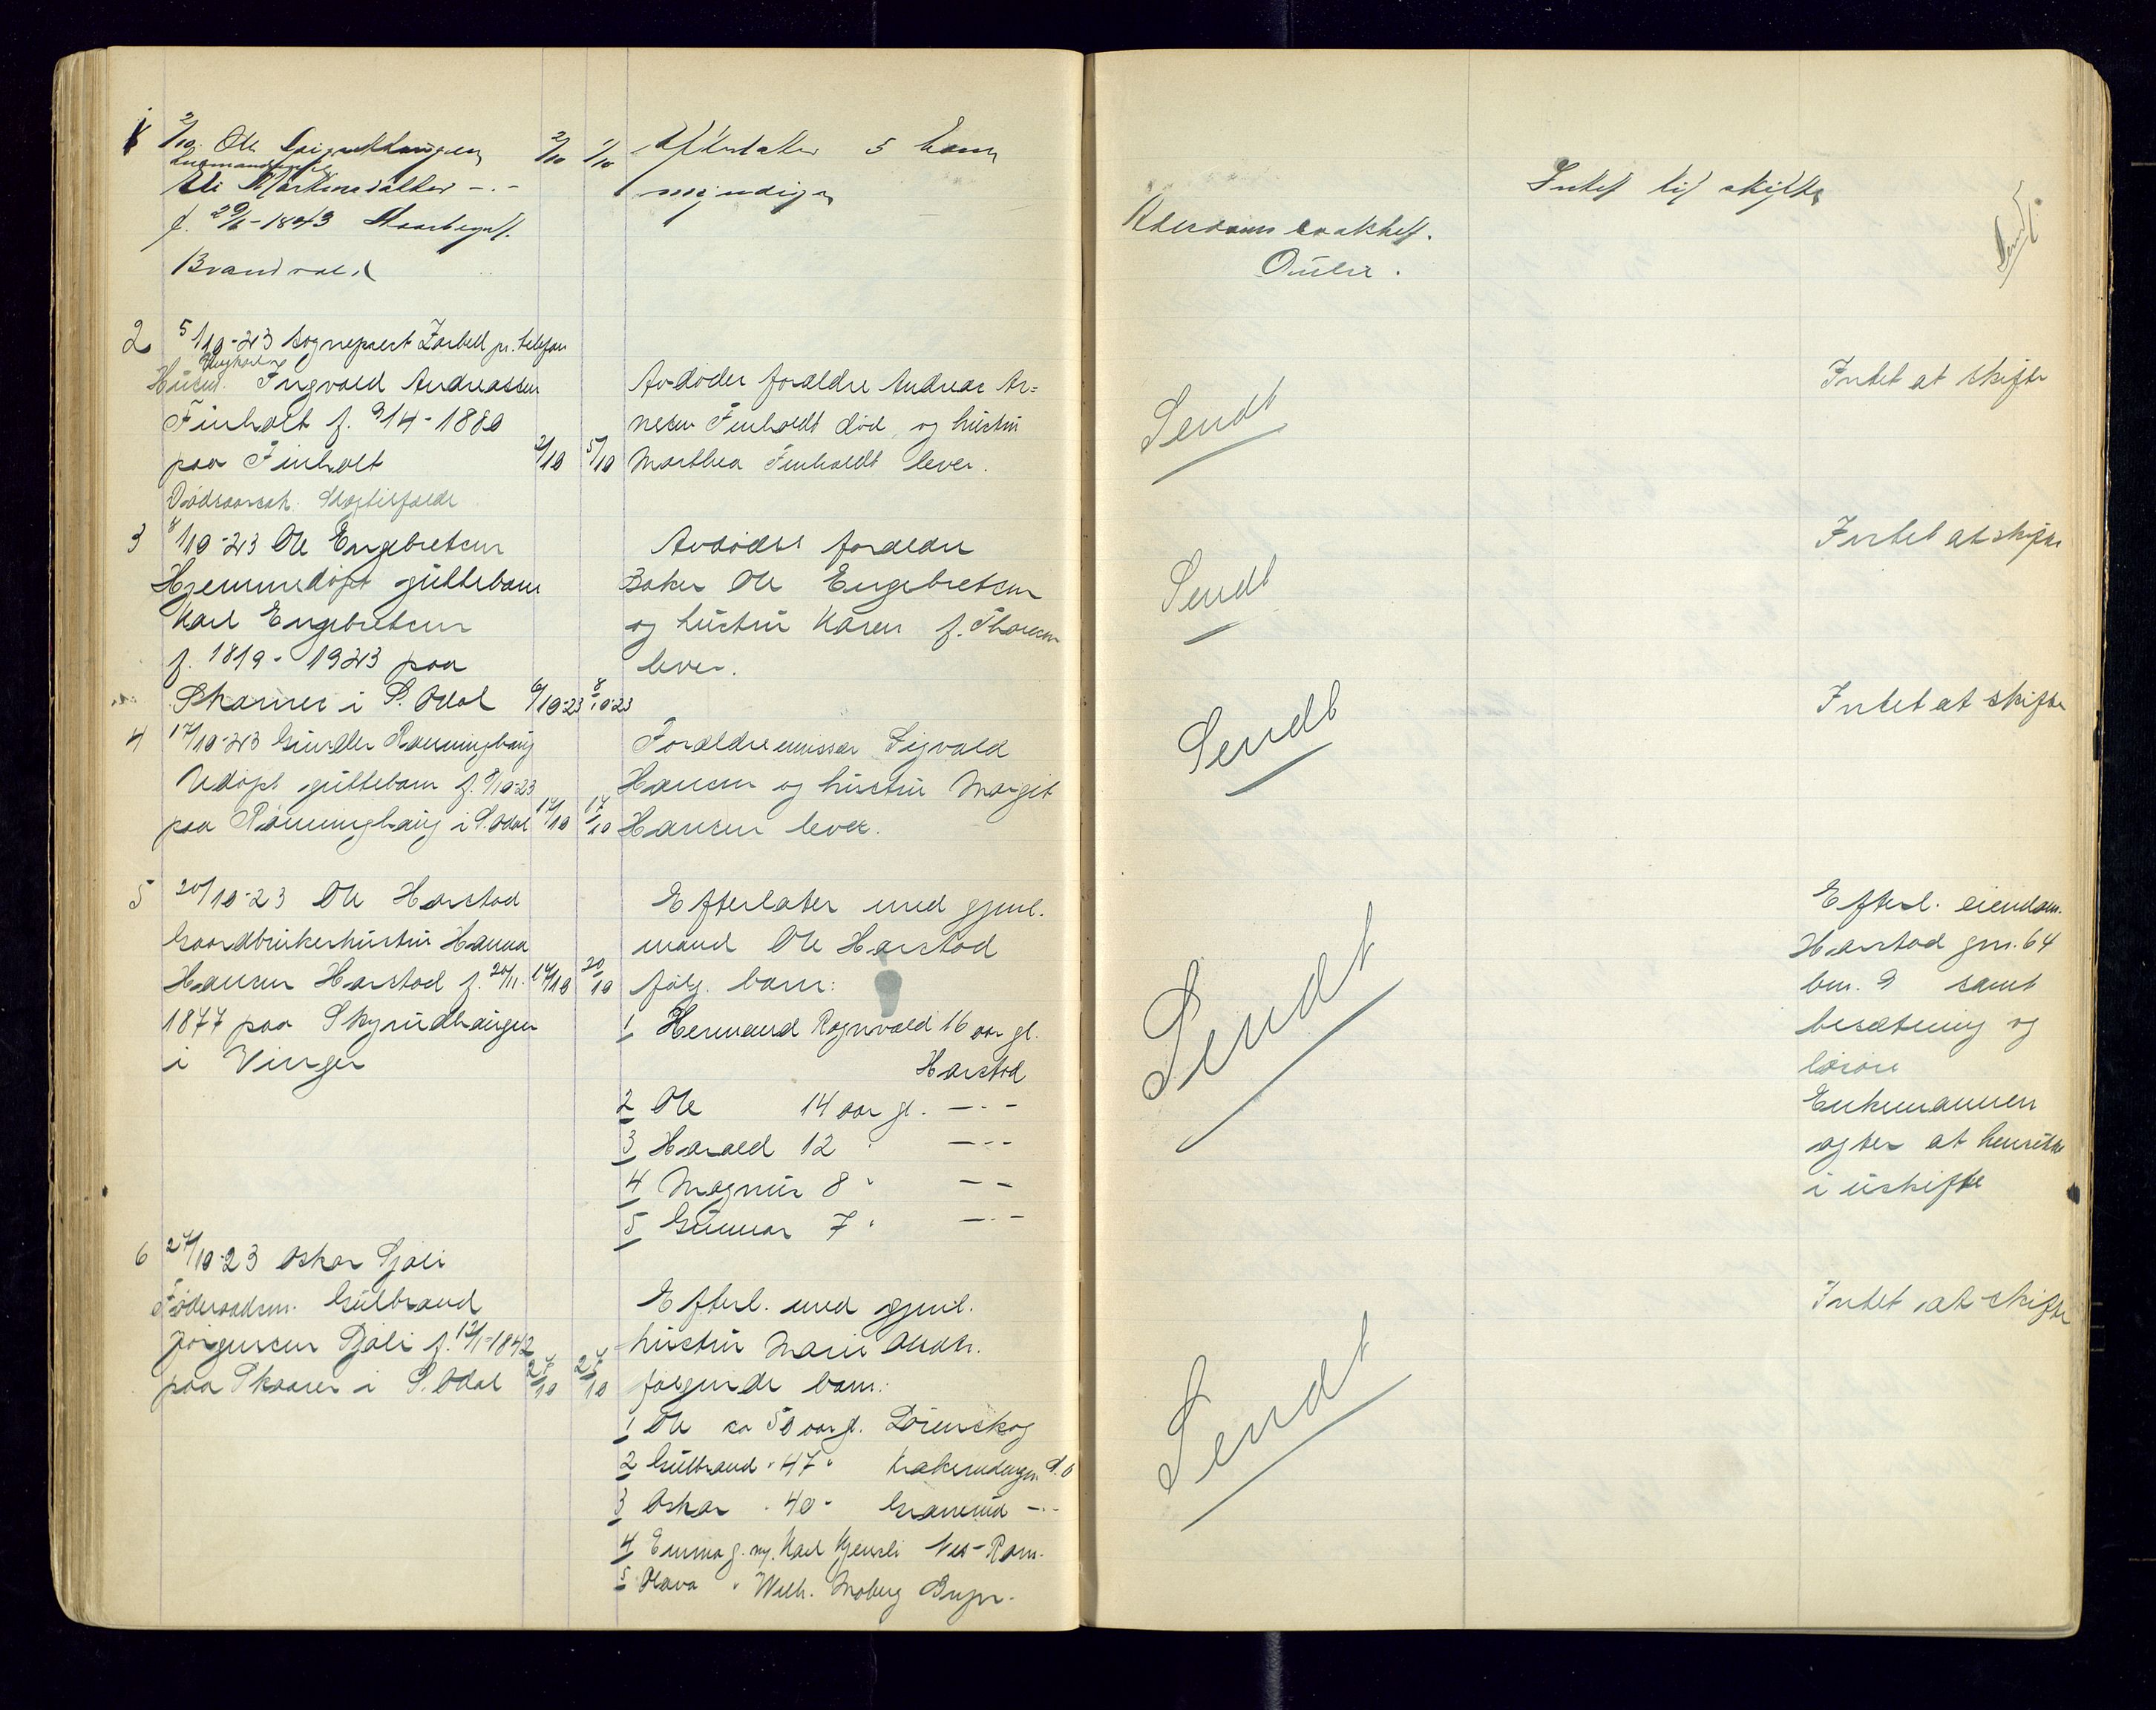 2/10. Ole
Eli
f. 29/6-1843
Brandval
2/10 1/10 Efterlater 5 barn
myndige
Intet til skifte
Sendt.
2 5/10-23 Sogneprest Zarbell pr. telefon
Ungkarl
Husm. Ingvald Andreassen
Finholt f. 9/4-1880
paa Finholt 2/10 5/10
Dødsaarsak: Slagtilfælde
Avdødes forældre Andreas Ar=
nesen Finholdt død og hustru
Marthea Finholdt lever.
Sendt
Intet at skifte
3 8/10-23 Ole Engebretsen
Hjemmedøpt guttebarn
Karl Engebretsen
f. 18/9-1923 paa
Skarnes i S. Odal 6/10-23 8/10-23
Avdødes forældre
Baker Ole Engebretsen
og hustru Karen f. Thoresen
lever.
Sendt
Intet at skifte
4 17/10-23 Gunder Rønninghaug
Udøpt guttebarn f. 9/10-23
paa Rønninghaug i S. Odal 14/10 17/10
Forældrene
Sigvald
Hansen og hustru Margit
Hansen lever.
Sendt
Intet at skifte
5 20/10-23 Ole Harstad
Gaardbrukerhustru Hanna
Hansen Harstad f. 20/11- 14/10 20/10
1877 paa Skyrudhaugen
i Vinger
Efterlater med gjenl.
mand Ole Harstad
følg. barn:
1 Hermand Ragnvald 16 aar gl.
Harstad
2 Ole 14 aar gl. —·-
3 Harald 12 " —--
4 Magnus 8 " — —
5 Gunnar 7 " —·-
Sendt
Efterl. eiendom.
Harstad gnr. 64
bnr. 9 samt
besætning og
løsøre
Enkemannen
agter at hensitte
i uskifte
6 27/10-23 Oskar Sjøli
Føderaadsm. Gulbrand
Jørgensen Sjøli f. 12/1-1842
paa Skaarer i S. Odal 27/10 27/10
Efterl. med gjenl.
hustru Marie Olsdtr.
følgende barn:
1 Ole ca 50 aar gl. Lørenskog
2 Gulbrand " 47 " S. O
3 Oskar " 40 " Granerud —·-
4 Emma g. m. Karl Nes-Rom.
5 Olava " Wilh. Moberg
Sendt
Intet at skifte